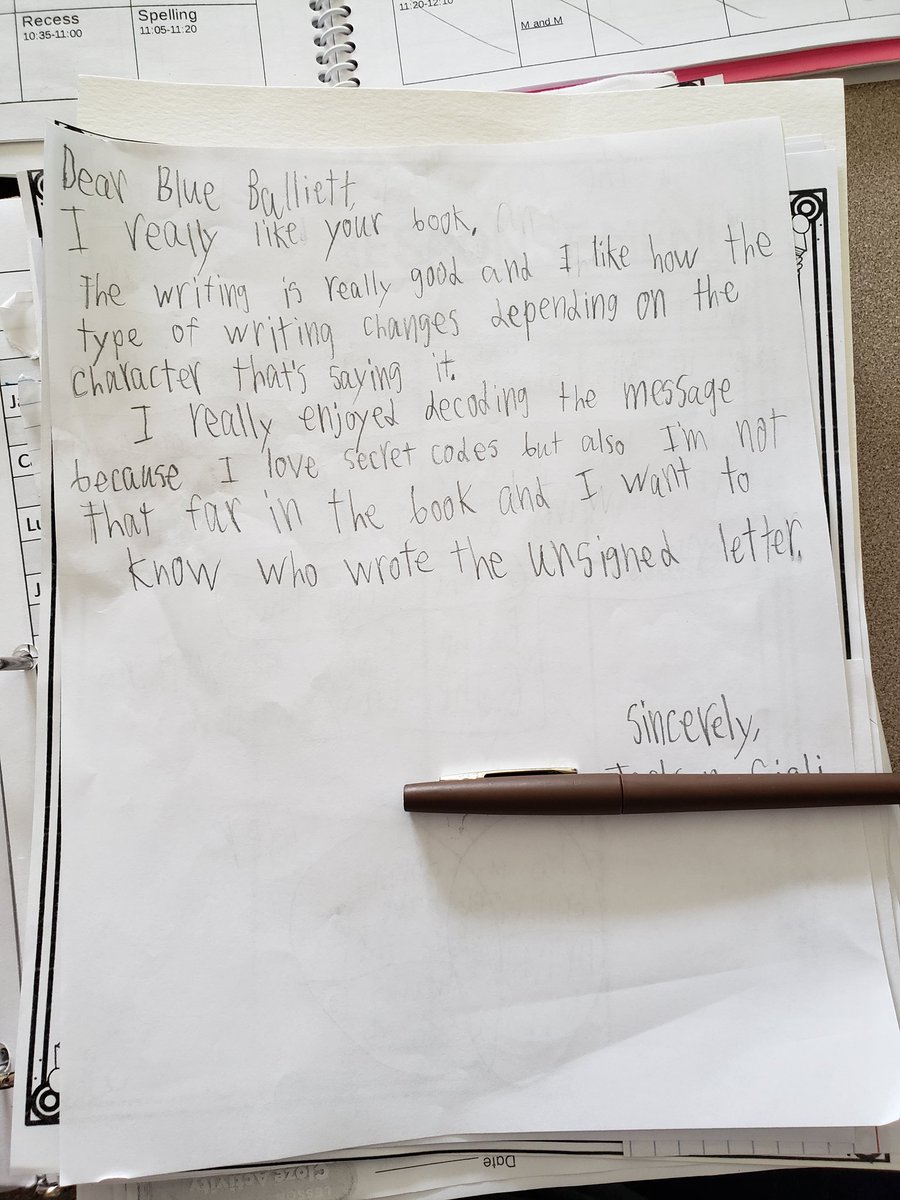 Recess
10:35-11:00
Spelling
11:05-11:20
11:20-12:10
M and M
Dear Blue Balliett,
I really like your book.
The writing is really good and I like how the
type of writing changes depending on the
character that's saying it.
I really enjoyed decoding the message
because I love secret codes but also I'm not
that far in the book and I want to
know who wrote the unsigned letter.
Sincerely,
Date